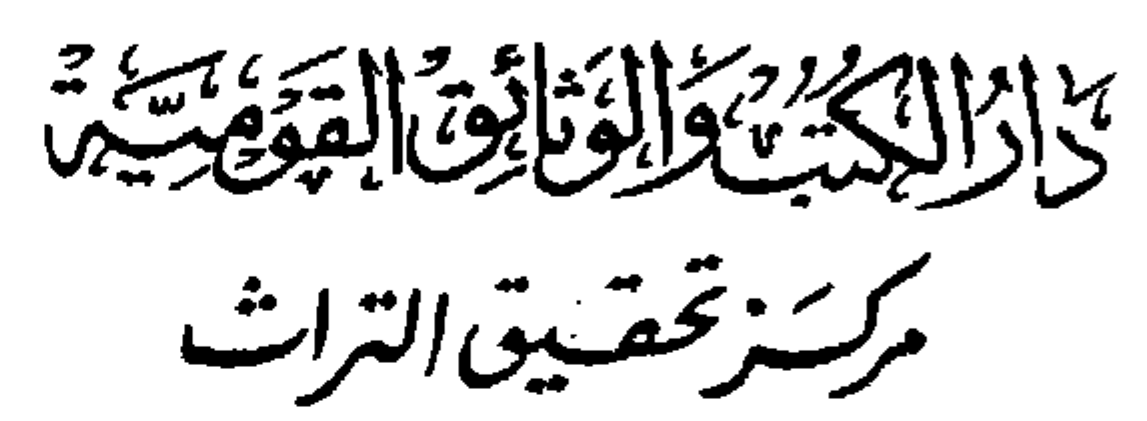 دَارُ الكُتُبِ وَالوَثَائِقِ القَوْمِيَّة
مركَز تحقيق التراث